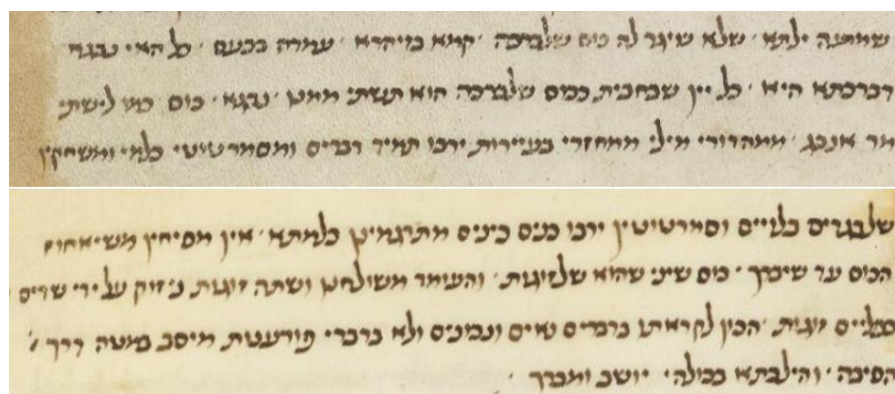 שמעה ילתא · שלא שיגר לה כוס שלברכה · קמא בזיהרא · עמדה בכעס · כל האי נבגא
דברכתא היא · כל יין שבחבית ככוס שלברכה הוא תשתי ממנו · נבגא · כוס כמו לישתי
מר אנבג · ממהדורי מילי ממחזרי בעיירות ירבו תמיד דברים ומסמרטוטי כלמי ומשחקין
שלבגדים בלויים וסמרטוטין ירבו כנים כינים מתרגמינן כלמתא · אין מסיחין משיאחוז
הכוס עד שיברך · כוס שיני שהוא שלזיגות · והעומד משולחנו ושתה זיגות ניזוק על ידי שדים
זוגות · הכון לקראת בדברים נאים ונכונים ולא בדברי פורענות מיסב במטה דרך
הסיבה · והילכתא בכולהי יושב ומברך ·